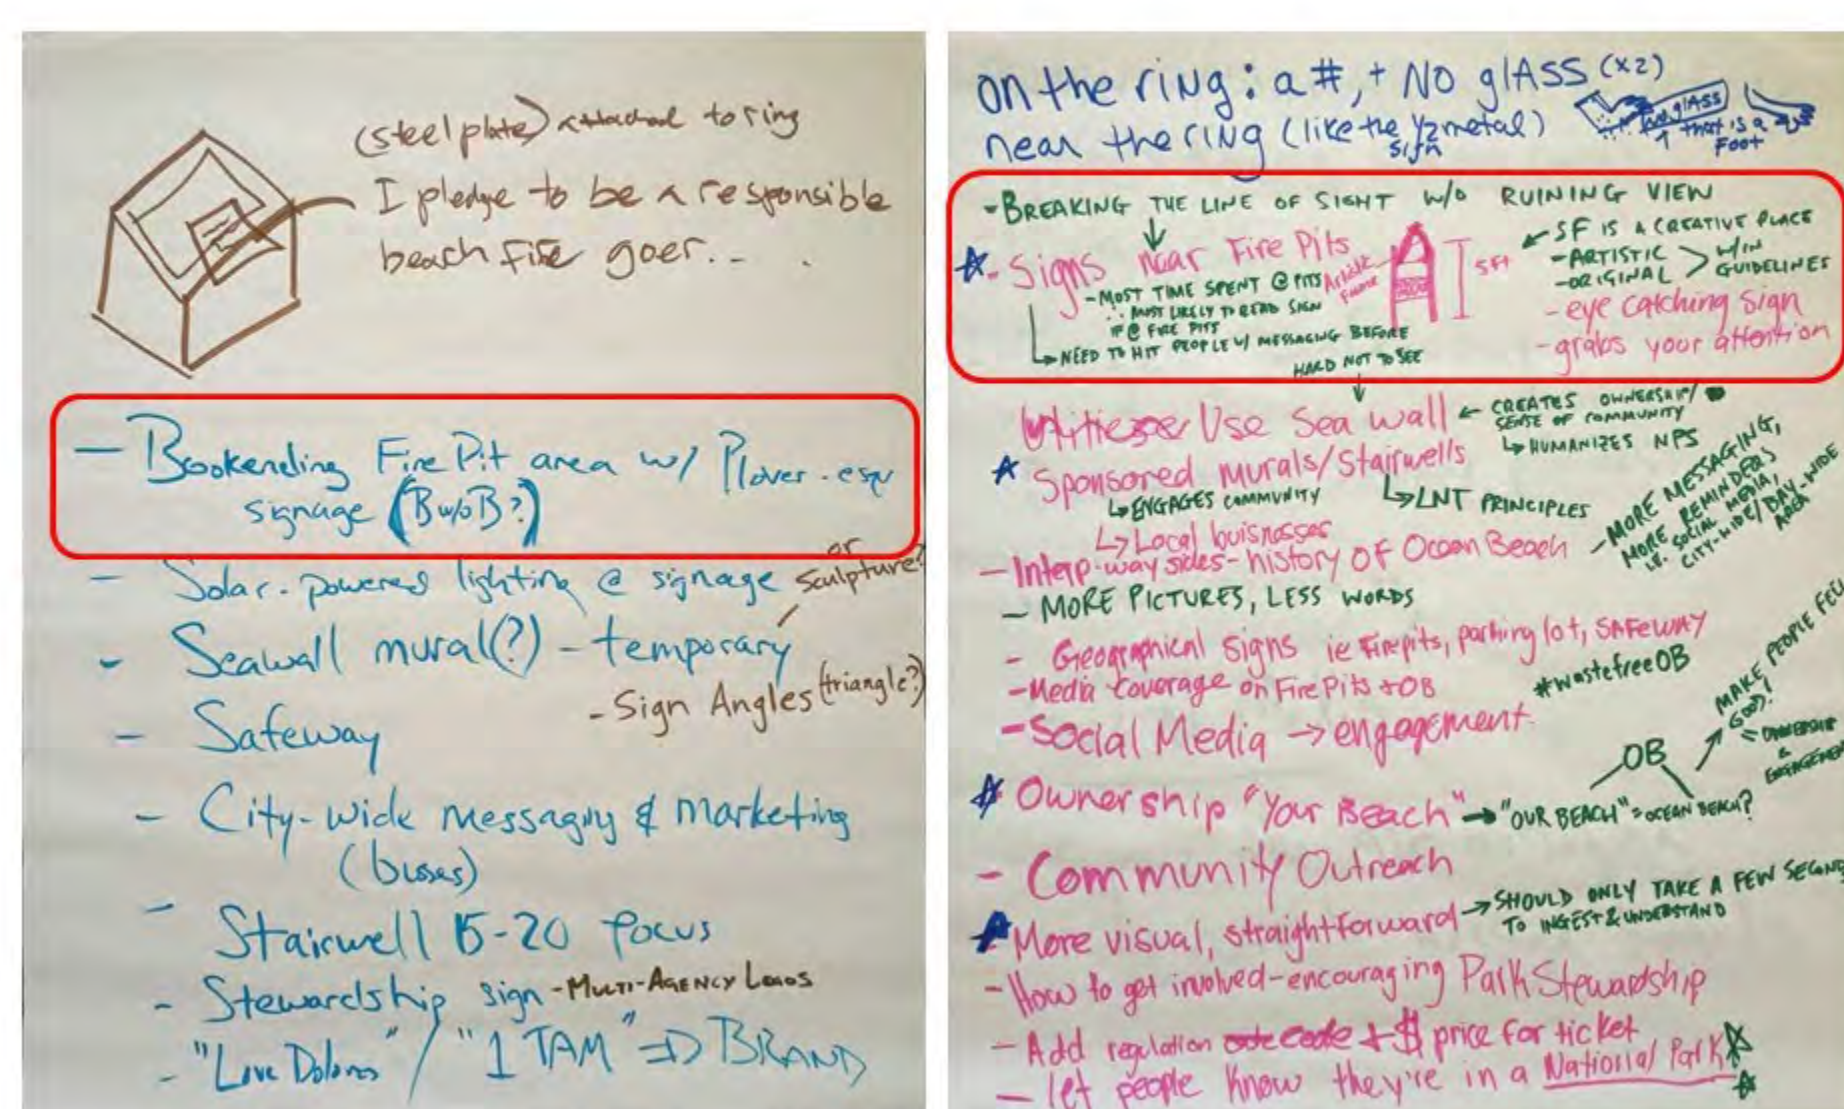 (steel plate) attached to ring
I pledge to be a responsible
beach fire goer...
- Bookending Fire Pit area w/ Plover-esqu
signage (B w/o B?)
- Solar-powered lighting @ signage
or sculpture?
- Seawall mural(?) - temporary
- Sign Angles (triangle?)
- Safeway
- City-wide messaging & marketing
(buses)
- Stairwell 15-20 focus
- Stewardship sign - MULTI-AGENCY LOGOS
- "Love Dolores" / "1 TAM" => BRAND
on the ring: a #, + NO glASS (x2)
near the ring (like the 1/2 metal)
sign
no glASS
that is a
FOOT
- BREAKING THE LINE OF SIGHT W/O RUINING VIEW
- Signs near Fire Pits
- MOST TIME SPENT @ PITS
∴ MOST LIKELY TO READ SIGN
IF @ FIRE PITS
NEED TO HIT PEOPLE W/ MESSAGING BEFORE
Artistic
Frame
5FT
SF IS A CREATIVE PLACE
- ARTISTIC
- ORIGINAL
W/IN
GUIDELINES
- eye catching sign
- grabs your attention
HARD NOT TO SEE
Use Sea wall
CREATES OWNERSHIP/
SENSE OF COMMUNITY
HUMANIZES NPS
Sponsored murals/Stairwells
ENGAGES COMMUNITY
LNT PRINCIPLES
Local buisnesses
- MORE MESSAGING,
MORE REMINDERS
I.E. SOCIAL MEDIA,
CITY-WIDE/BAY-WIDE
AREA
- Interp-waysides - history of Ocean Beach
- MORE PICTURES, LESS WORDS
- Geographical Signs ie Firepits, parking lot, SAFEWAY
- Media Coverage on Fire Pits + OB
#wastefreeOB
- Social Media → engagement
MAKE PEOPLE FEEL
GOOD!
= OWNERSHIP
&
ENGAGEMENT
OB
- Ownership "Your Beach" → "OUR BEACH" = OCEAN BEACH?
- Community Outreach
- More visual, straightforward → SHOULD ONLY TAKE A FEW SECONDS
TO INGEST & UNDERSTAND
- How to get involved - encouraging Park Stewardship
- Add regulation code + $ price for ticket
- let people know they're in a National Park